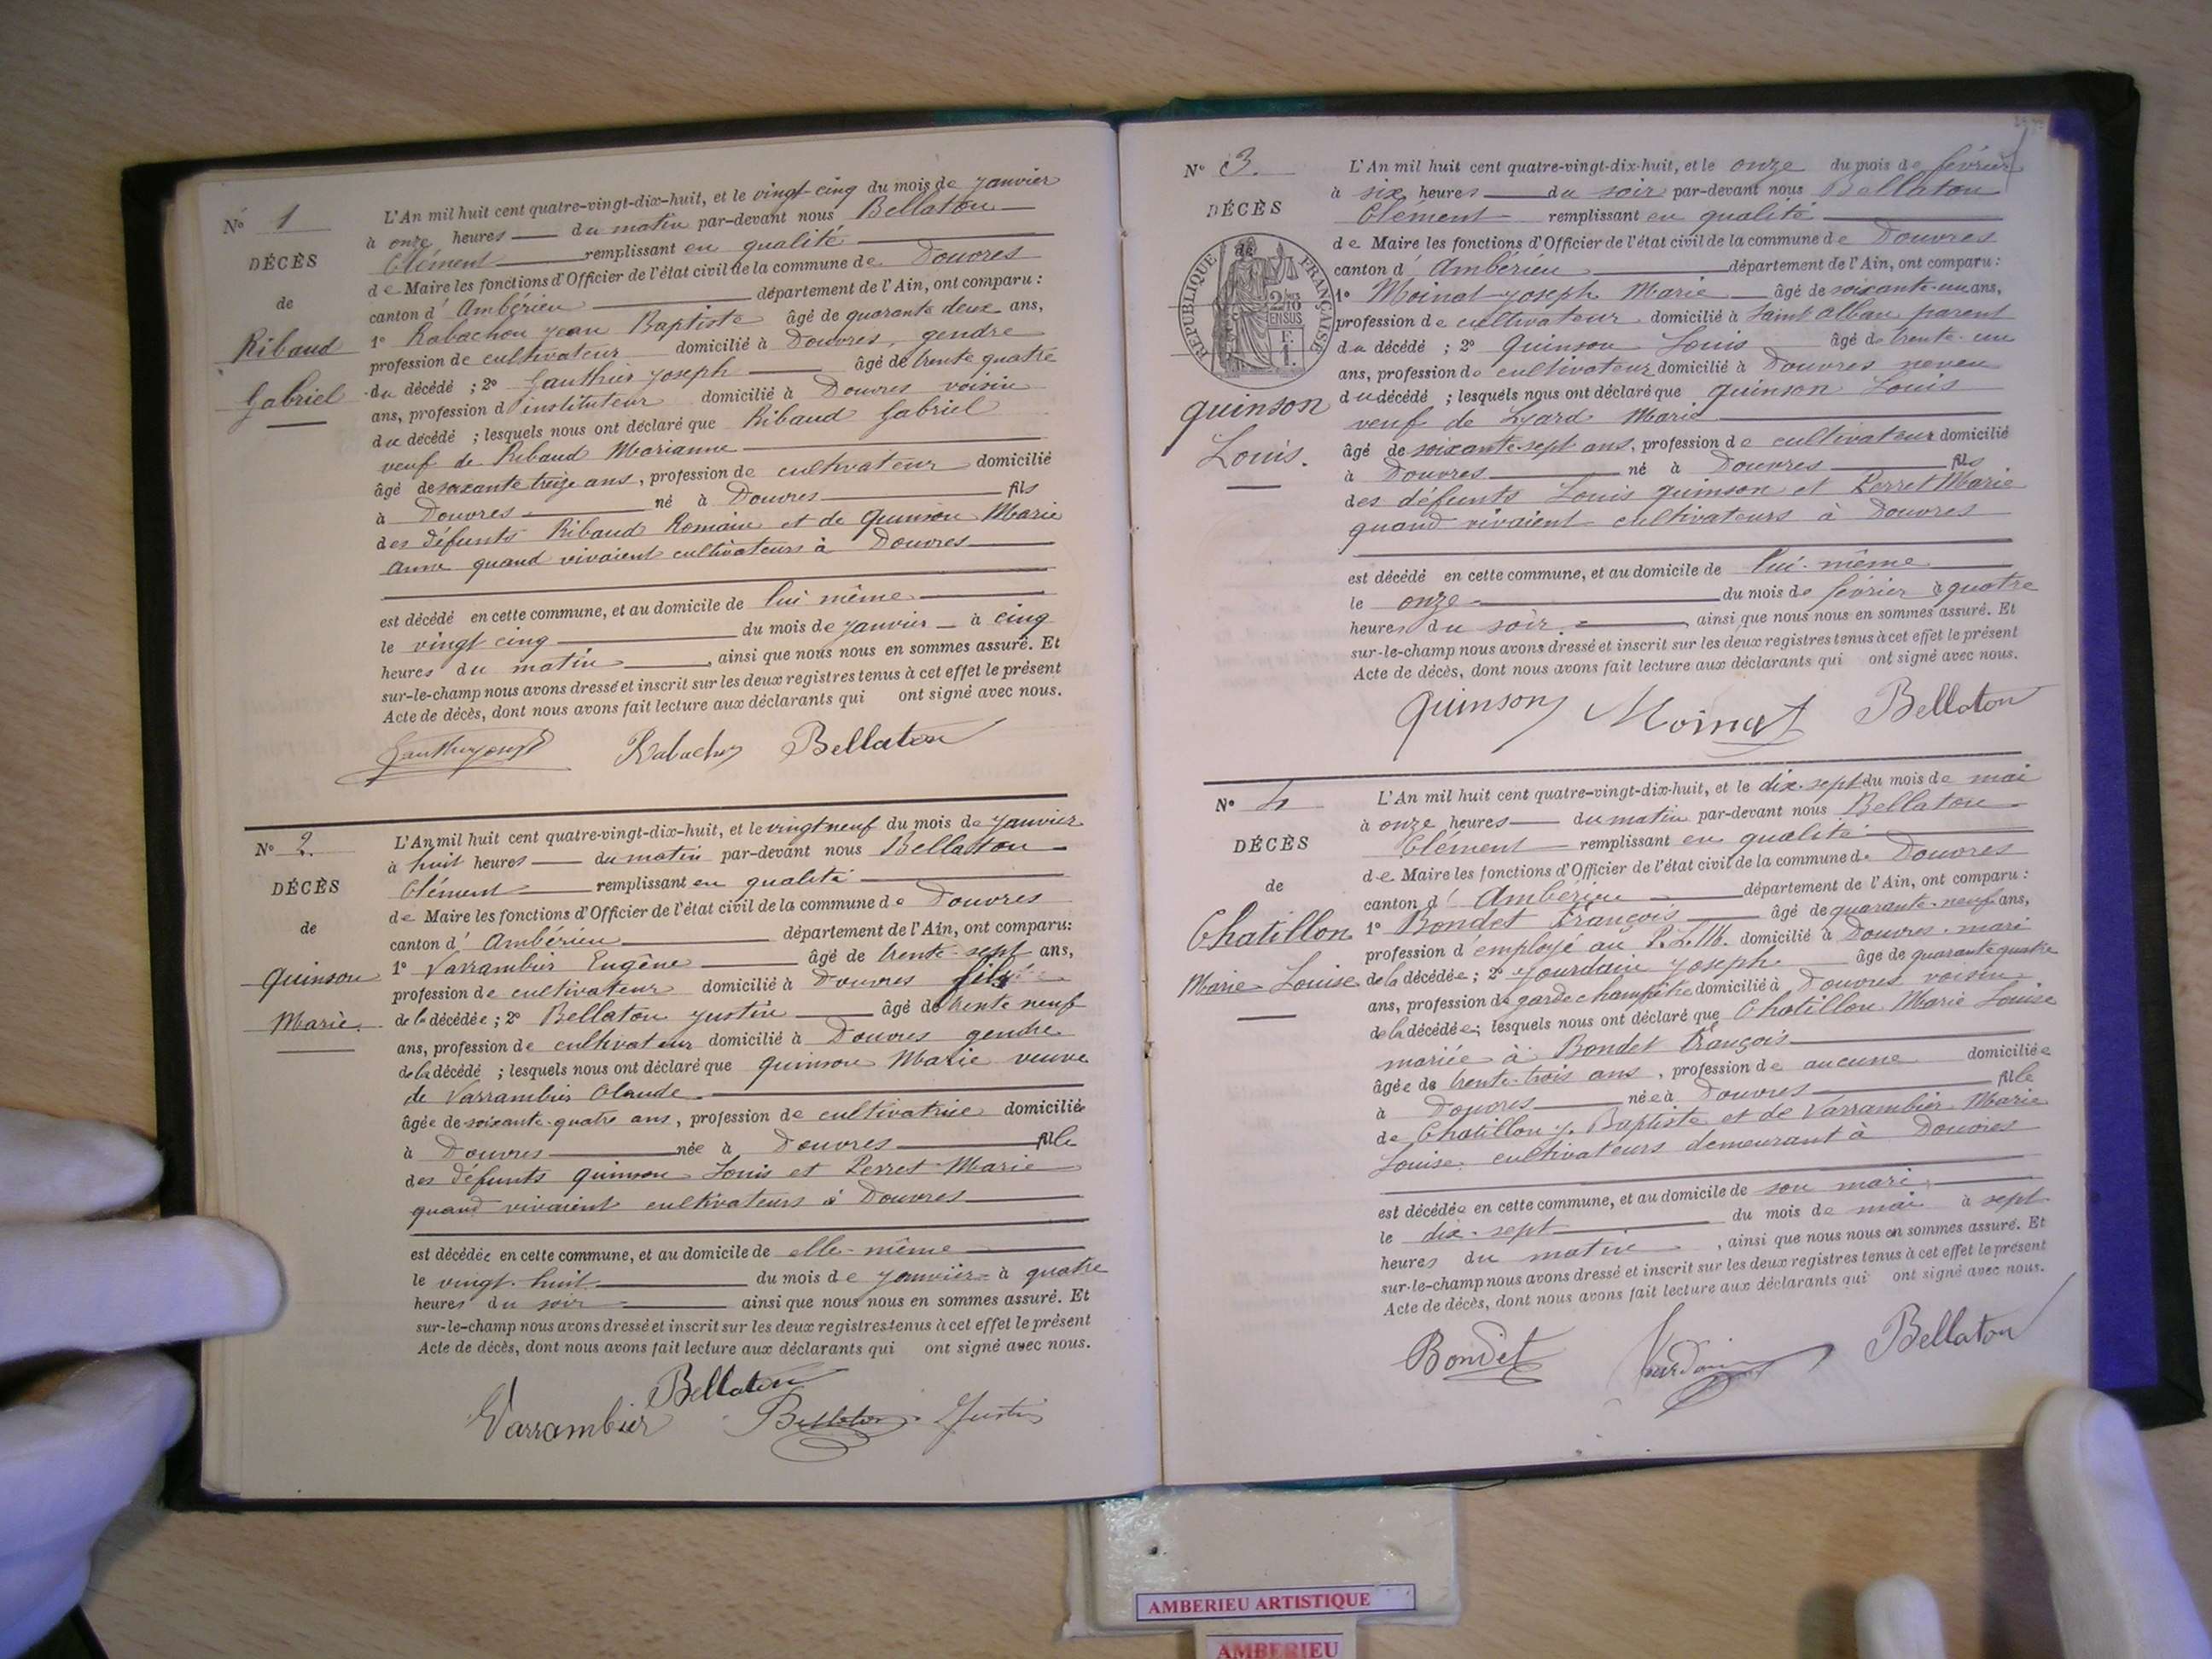 N° 1
DÉCÈS
de
Ribaud
Gabriel
L'An mil huit cent quatre-vingt-dix-huit, et le vingt cinq du mois de Janvier
à onze heures du matin par-devant nous Bellaton
Clément remplissant en qualité
de Maire les fonctions d'Officier de l'état civil de la commune de Douvres
canton d'Ambérieu département de l'Ain, ont comparu :
1° Rabachou Jean Baptiste âgé de quarante deux ans,
profession de cultivateur domicilié à Douvres, gendre
du décédé ; 2° Gauthier Joseph âgé de trente quatre
ans, profession d'instituteur domicilié à Douvres voisin
du décédé ; lesquels nous ont déclaré que Ribaud Gabriel
veuf de Ribaud Marianne
âgé de soixante treize ans, profession de cultivateur domicilié
à Douvres né à Douvres fils
des défunts Ribaud Romain et de Quinson Marie
Anne quand vivaient cultivateurs à Douvres
est décédé en cette commune, et au domicile de lui même
le vingt cinq du mois de Janvier à cinq
heures du matin, ainsi que nous nous en sommes assuré. Et
sur-le-champ nous avons dressé et inscrit sur les deux registres tenus à cet effet le présent
Acte de décès, dont nous avons fait lecture aux déclarants qui ont signé avec nous.
Gauthier Joseph Rabachou Bellaton
N° 2.
DÉCÈS
de
Quinson
Marie.
L'An mil huit cent quatre-vingt-dix-huit, et le vingt neuf du mois de Janvier
à huit heures du matin par-devant nous Bellaton
Clément remplissant en qualité
de Maire les fonctions d'Officier de l'état civil de la commune de Douvres
canton d'Ambérieu département de l'Ain, ont comparu:
1° Varrambier Eugène âgé de trente-sept ans,
profession de cultivateur domicilié à Douvres fils
de la décédée ; 2° Bellaton Justin âgé de trente neuf
ans, profession de cultivateur domicilié à Douvres gendre
de la décédé ; lesquels nous ont déclaré que Quinson Marie veuve
de Varrambier Claude
âgée de soixante-quatre ans, profession de cultivatrice domiciliée
à Douvres née à Douvres fille
des défunts Quinson Louis et Perret Marie
quand vivaient cultivateurs à Douvres
est décédée en cette commune, et au domicile de elle-même
le vingt-huit du mois de Janvier à quatre
heures du soir ainsi que nous nous en sommes assuré. Et
sur-le-champ nous avons dressé et inscrit sur les deux registres tenus à cet effet le présent
Acte de décès, dont nous avons fait lecture aux déclarants qui ont signé avec nous.
Bellaton
Varrambier Bellaton Justin
N° 3.
DÉCÈS
de
RÉPUBLIQUE FRANÇAISE
2/10
EN SUS
F.
1.
Quinson
Louis.
L'An mil huit cent quatre-vingt-dix-huit, et le onze du mois de février
à six heures du soir par-devant nous Bellaton
Clément remplissant en qualité
de Maire les fonctions d'Officier de l'état civil de la commune de Douvres
canton d'Ambérieu département de l'Ain, ont comparu :
1° Moinat Joseph Marie âgé de soixante-un ans,
profession de cultivateur domicilié à Saint Alban parent
du décédé ; 2° Quinson Louis âgé de trente-un
ans, profession de cultivateur domicilié à Douvres neveu
du décédé ; lesquels nous ont déclaré que Quinson Louis
veuf de Lyard Marie
âgé de soixante-sept ans, profession de cultivateur domicilié
à Douvres né à Douvres fils
des défunts Louis Quinson et Perret Marie
quand vivaient cultivateurs à Douvres
est décédé en cette commune, et au domicile de lui-même
le onze du mois de février à quatre
heures du soir, ainsi que nous nous en sommes assuré. Et
sur-le-champ nous avons dressé et inscrit sur les deux registres tenus à cet effet le présent
Acte de décès, dont nous avons fait lecture aux déclarants qui ont signé avec nous.
Quinson Moinat Bellaton
N° 4
DÉCÈS
de
Chatillon
Marie Louise
L'An mil huit cent quatre-vingt-dix-huit, et le dix-sept du mois de mai
à onze heures du matin par-devant nous Bellaton
Clément remplissant en qualité
de Maire les fonctions d'Officier de l'état civil de la commune de Douvres
canton d'Ambérieu département de l'Ain, ont comparu :
1° Bondet François âgé de quarante-neuf ans,
profession d'employé au P.L.M. domicilié à Douvres. mari
de la décédée ; 2° Jourdain Joseph âgé de quarante quatre
ans, profession de garde champêtre domicilié à Douvres voisin
de la décédée ; lesquels nous ont déclaré que Chatillon Marie Louise
mariée à Bondet François
âgée de trente-trois ans, profession de aucune domiciliée
à Douvres née à Douvres fille
de Chatillon J. Baptiste et de Varrambier Marie
Louise cultivateurs demeurant à Douvres
est décédée en cette commune, et au domicile de son mari,
le dix-sept du mois de mai à sept
heures du matin, ainsi que nous nous en sommes assuré. Et
sur-le-champ nous avons dressé et inscrit sur les deux registres tenus à cet effet le présent
Acte de décès, dont nous avons fait lecture aux déclarants qui ont signé avec nous.
Bondet Jourdain Bellaton
AMBERIEU ARTISTIQUE
AMBERIEU